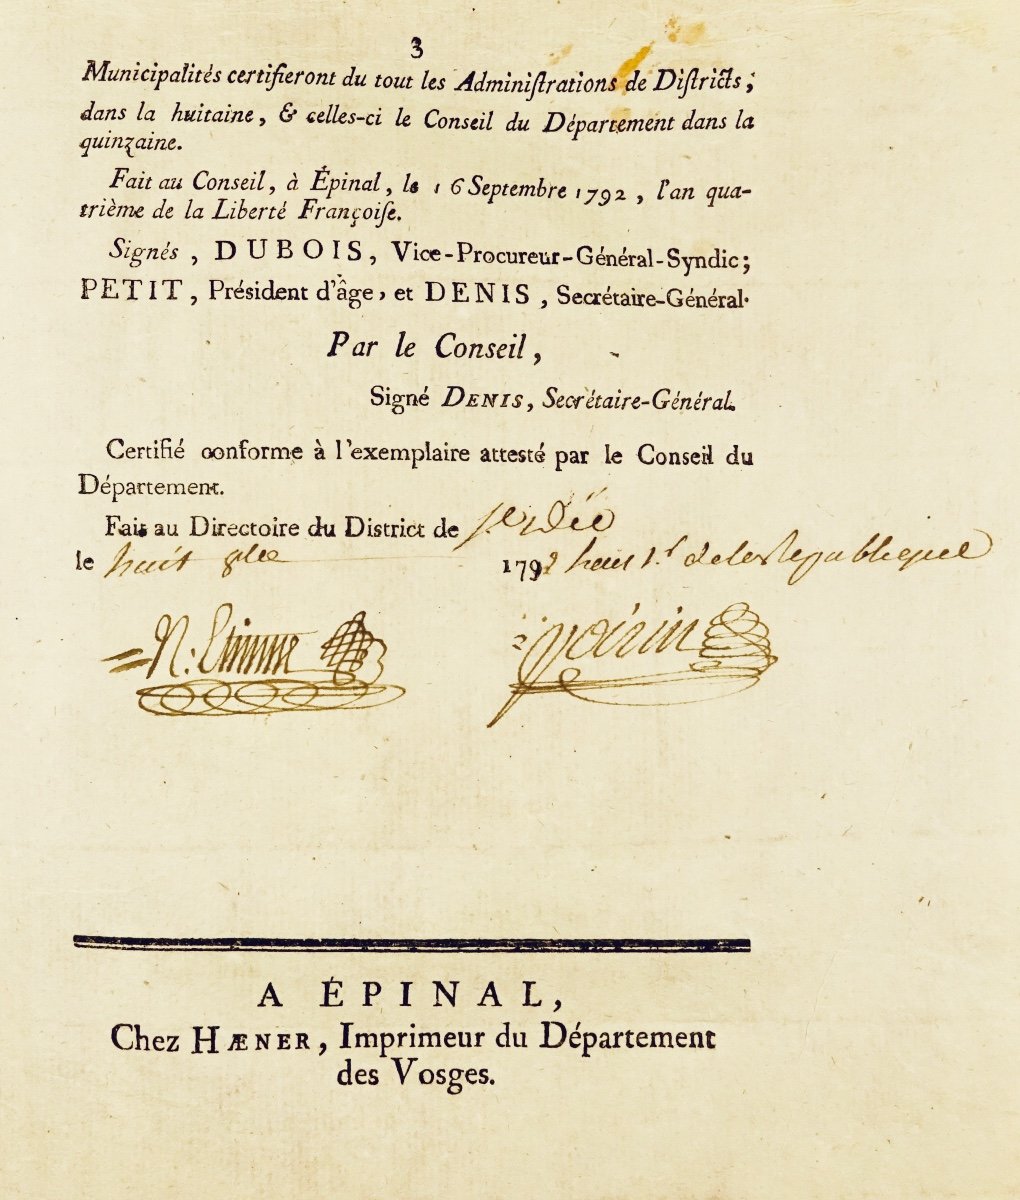 3
Municipalités certifieront du tout les Adminiſtrations de Diſtricts;
dans la huitaine, & celles-ci le Conseil du Département dans la
quinzaine.
Fait au Conseil, à Épinal, le 16 Septembre 1792, l'an qua-
trième de la Liberté Françoiſe.
Signés, DUBOIS, Vice-Procureur-Général-Syndic;
PETIT, Président d'âge, et DENIS, Secrétaire-Général.
Par le Conseil,
Signé DENIS, Secrétaire-Général.
Certifié conforme à l'exemplaire attesté par le Conseil du
Département.
Fait au Directoire du District de St Dié
le huit 8bre 1792 1.r de la Republique
N. Etienne
A ÉPINAL,
Chez HÆNER, Imprimeur du Département
des Vosges.